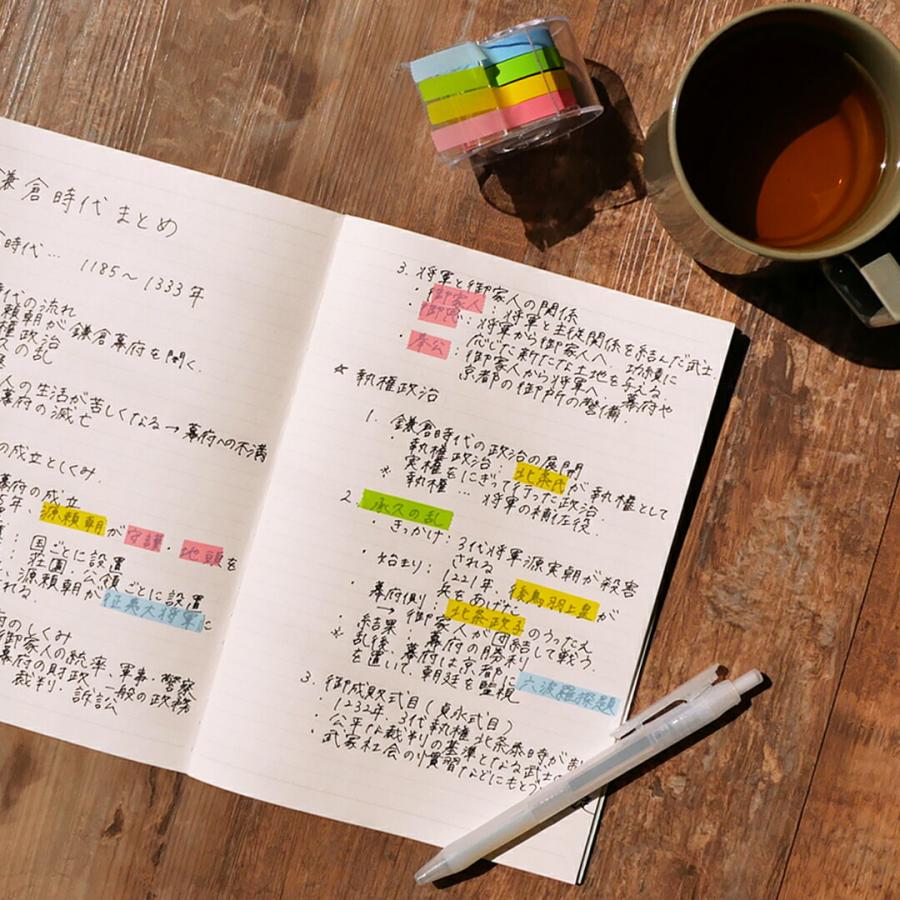 鎌倉時代 まとめ
時代… 1185〜1333年
時代の流れ
頼朝が鎌倉幕府を開く.
権政治
久の乱
人の生活が苦しくなる→幕府への不満
幕府の滅亡
の成立としくみ
幕府の成立
5年. 源頼朝が守護・地頭を
: 国ごとに設置
: 荘園・公領ごとに設置
. 源頼朝が征夷大将軍に
れる.
府のしくみ
御家人の統率、軍事・警察
幕府の財政、一般の政務
裁判・訴訟
3. 将軍と御家人の関係
・御家人: 将軍と主従関係を結んだ武士.
・御恩: 将軍から御家人へ. 功績に
応じた新たな土地を与える.
・奉公: 御家人から将軍へ. 幕府や
京都の御所の警備.
☆ 執権政治
1. 鎌倉時代の政治の展開
・執権政治: 北条氏が執権として
実権をにぎって行った政治.
※ 執権 … 将軍の補佐役.
2. 承久の乱
・きっかけ: 3代将軍源実朝が殺害
される
・始まり: 1221年. 後鳥羽上皇が
兵をあげた
・幕府側: 北条政子のうったえ
→ 御家人が団結して戦う.
・結果: 幕府の勝利
※ 乱後、幕府は京都に六波羅探題
を置いて、朝廷を監視
3. 御成敗式目(貞永式目)
・1232年. 3代執権 北条泰時が制
・公平な裁判の基準となる武士の
・武家社会の慣習などにもとづ